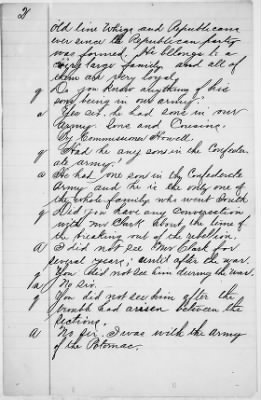 2
Old line Whigs and Republicans
ever since the Republican party
was formed. He belongs to a
very large family and all of
them are very loyal.
q Do you know anything of his
sons being in our army.
a Yes sir, he had sons in our
Army. Sons and Cousins.
By Commissioner Howell.
q Had he any sons in the Confeder-
ate army?
a He had one son in the Confederate
Army and he is the only one of
the whole family who went South
q Did you have any conversation
with Mr Clark about the time of
the breaking out of the rebellion.
A I did not see Mr Clark for
several years; until after the war.
q You did not see him during the war.
a No sir.
q You did not see him after the
trouble had arisen between the
sections.
A No sir. I was with the Army
of the Potomac.